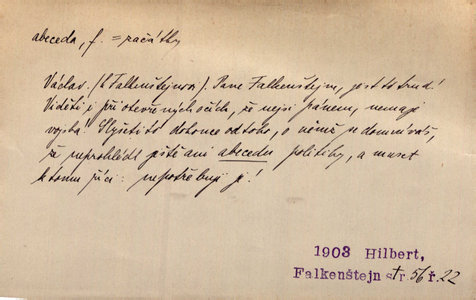 abeceda, f. = začátky
Václav. (k Falkenštejnovi). Pane Falkenštejn, jest to trud!
Viděti při otevřených očích, že nejsi pánem, nemaje
vojska! Slyšeti to dokonce od toho, o němž se domníváš,
že neprohlédl ještě ani abecedu politiky, a muset
k tomu říci: nepotřebuji jí!
1903 Hilbert,
Falkenštejn str 56 ř. 22